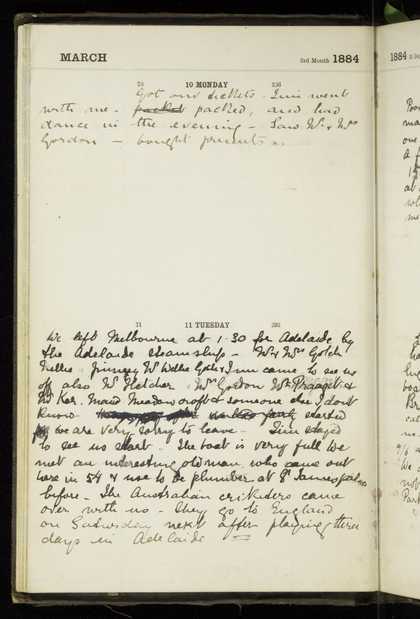 MARCH 3rd Month 1884
70 10 MONDAY 296
Got our tickets - Jim went
with me - packed packed, and had
dance in the evening - Saw Mr & Mrs
Gordon - bought presents
71 11 TUESDAY 295
We left Melbourne at 1-30 for Adelaide by
the Adelaide steamship - Mr & Mrs Gotch
Nellie Willie Gotch & Jim came to see us
off also Mr Fletcher Mr Gordon &
Mr Ker. Maud Meadowcroft & someone else I dont
know started
we are very sorry to leave - Jim stayed
to see us start. The boat is very full We
met an interesting old man who came out
here in 54 & use to be plumber at St James palace
before - The Australian cricketers came
over with us - they go to England
on Saturday next after playing three
days in Adelaide
1884